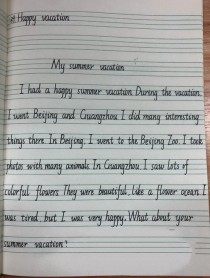 Happy vacation
My summer vacation
I had a happy summer vacation. During the vacation.
I went Beijing and Guangzhou. I did many interesting
things there. In Beijing. I went to the Beijing Zoo. I took
photos with many animals. In Guangzhou. I saw lots of
colorful flowers. They were beautiful, like a flower ocean. I
was tired, but I was very happy. What about your
summer vacation?